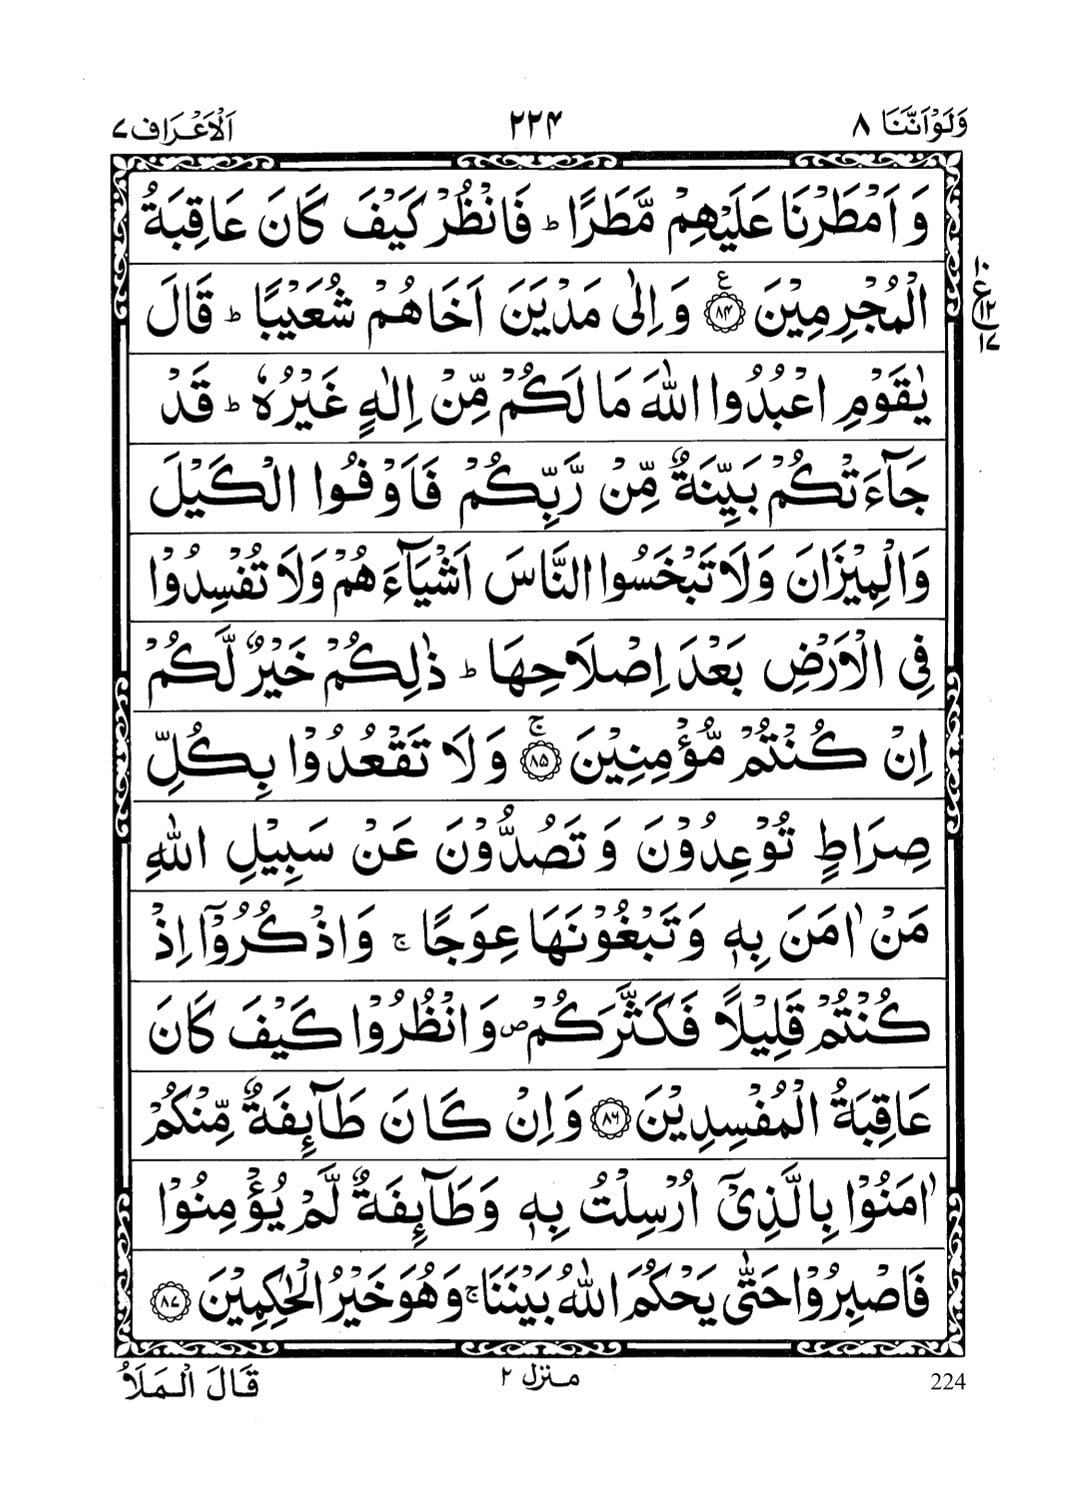 وَلَوْاَنَّنَا ٨
٢٢٤
اَلْاَعْرَاف ٧
وَ اَمْطَرْنَا عَلَيْهِمْ مَّطَرًا ؕ فَانْظُرْ كَيْفَ كَانَ عَاقِبَةُ
الْمُجْرِمِيْنَ ۧ﴿٨٤﴾ وَ اِلٰى مَدْيَنَ اَخَاهُمْ شُعَيْبًا ؕ قَالَ
يٰقَوْمِ اعْبُدُوا اللّٰهَ مَا لَكُمْ مِّنْ اِلٰهٍ غَيْرُهٗ ؕ قَدْ
جَآءَتْكُمْ بَيِّنَةٌ مِّنْ رَّبِّكُمْ فَاَوْفُوا الْكَيْلَ
وَالْمِيْزَانَ وَلَا تَبْخَسُوا النَّاسَ اَشْيَآءَهُمْ وَلَا تُفْسِدُوْا
فِي الْاَرْضِ بَعْدَ اِصْلَاحِهَا ؕ ذٰلِكُمْ خَيْرٌ لَّكُمْ
اِنْ كُنْتُمْ مُّؤْمِنِيْنَ ۚ﴿٨٥﴾ وَ لَا تَقْعُدُوْا بِكُلِّ
صِرَاطٍ تُوْعِدُوْنَ وَ تَصُدُّوْنَ عَنْ سَبِيْلِ اللّٰهِ
مَنْ اٰمَنَ بِهٖ وَ تَبْغُوْنَهَا عِوَجًا ۚ وَ اذْكُرُوْۤا اِذْ
كُنْتُمْ قَلِيْلًا فَكَثَّرَكُمْ ۪ وَ انْظُرُوْا كَيْفَ كَانَ
عَاقِبَةُ الْمُفْسِدِيْنَ ﴿٨٦﴾ وَ اِنْ كَانَ طَآىِٕفَةٌ مِّنْكُمْ
اٰمَنُوْا بِالَّذِيْۤ اُرْسِلْتُ بِهٖ وَ طَآىِٕفَةٌ لَّمْ يُؤْمِنُوْا
فَاصْبِرُوْا حَتّٰى يَحْكُمَ اللّٰهُ بَيْنَنَا ۚ وَ هُوَ خَيْرُ الْحٰكِمِيْنَ ﴿٨٧﴾
١٠
ع
١٢
١٧
224
منزل ٢
قَالَ الْمَلَاُ